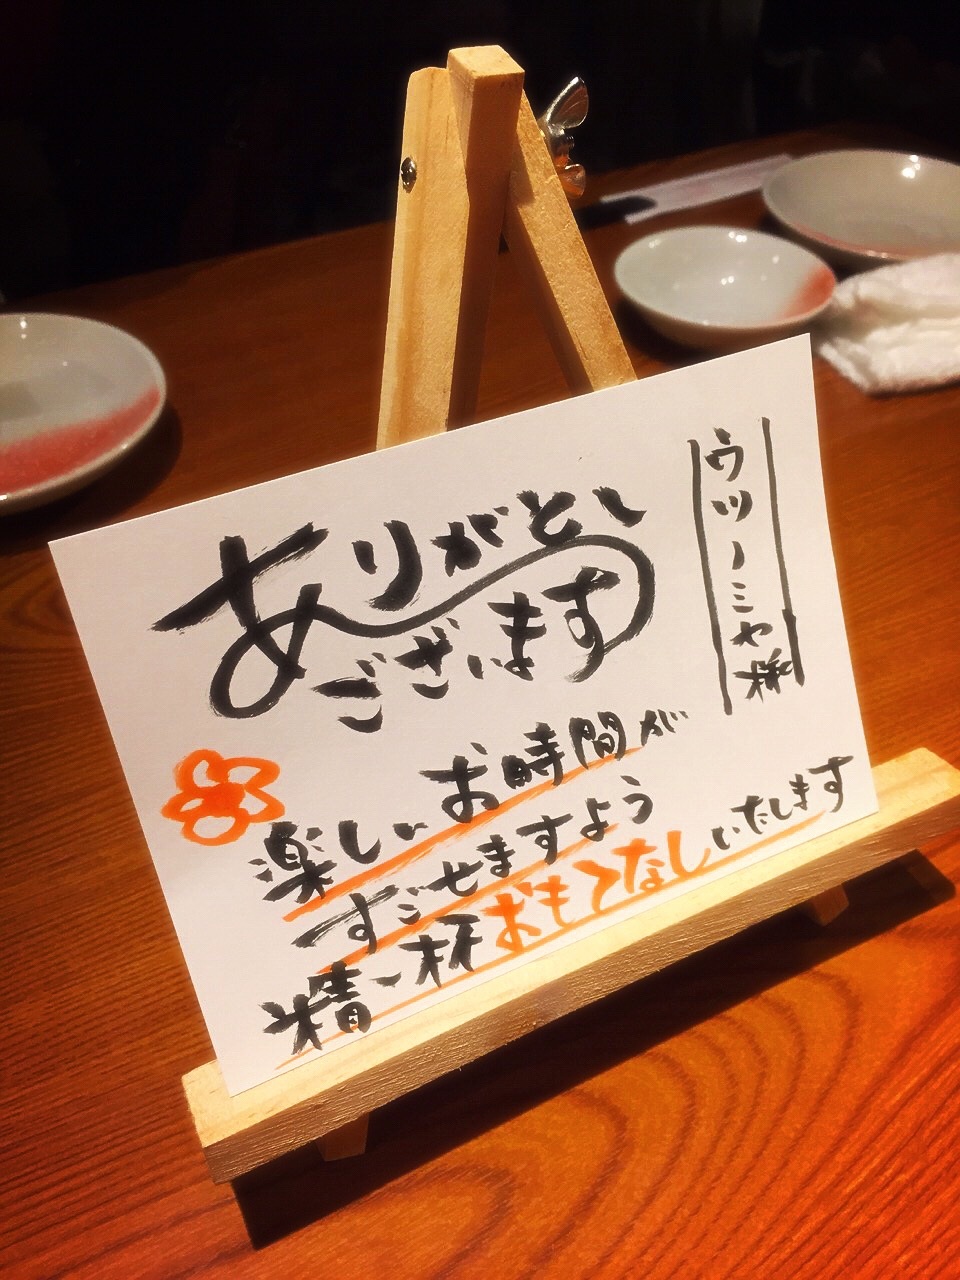 ウツノミヤ様
ありがとし
ございます
楽しいお時間が
すごせますよう
精一杯おもてなしいたします